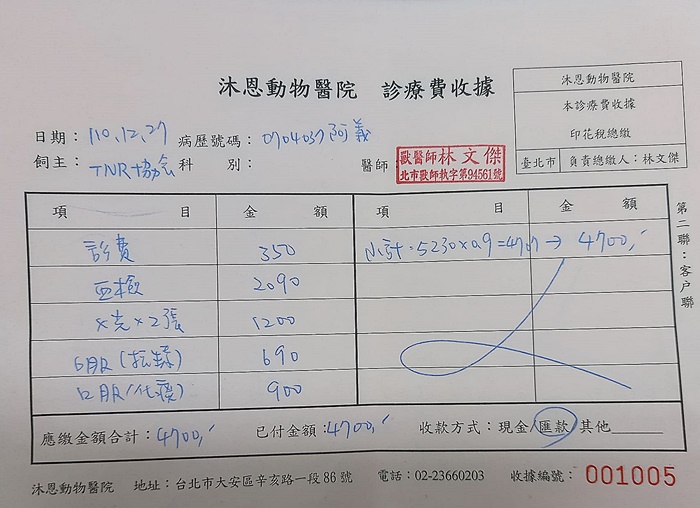 沐恩動物醫院 診療費收據
沐恩動物醫院
本診療費收據
印花稅總繳
臺北市 負責總繳人：林文傑
日期：110.12.27 病歷號碼：0704037 阿義
飼主：TNR協會 科 別： 醫師
獸醫師林文傑
北市獸師執字第94561號
項 目 金 額 項 目 金 額
診費 350 小計：5230×0.9=4707→ 4700,-
血檢 2090
X光×2張 1200
口服( 690
口服(化 900
應繳金額合計：4700,- 已付金額：4700,- 收款方式：現金/匯款/其他
第二聯：客户聯
沐恩動物醫院 地址：台北市大安區辛亥路一段86號 電話：02-23660203 收據編號：001005